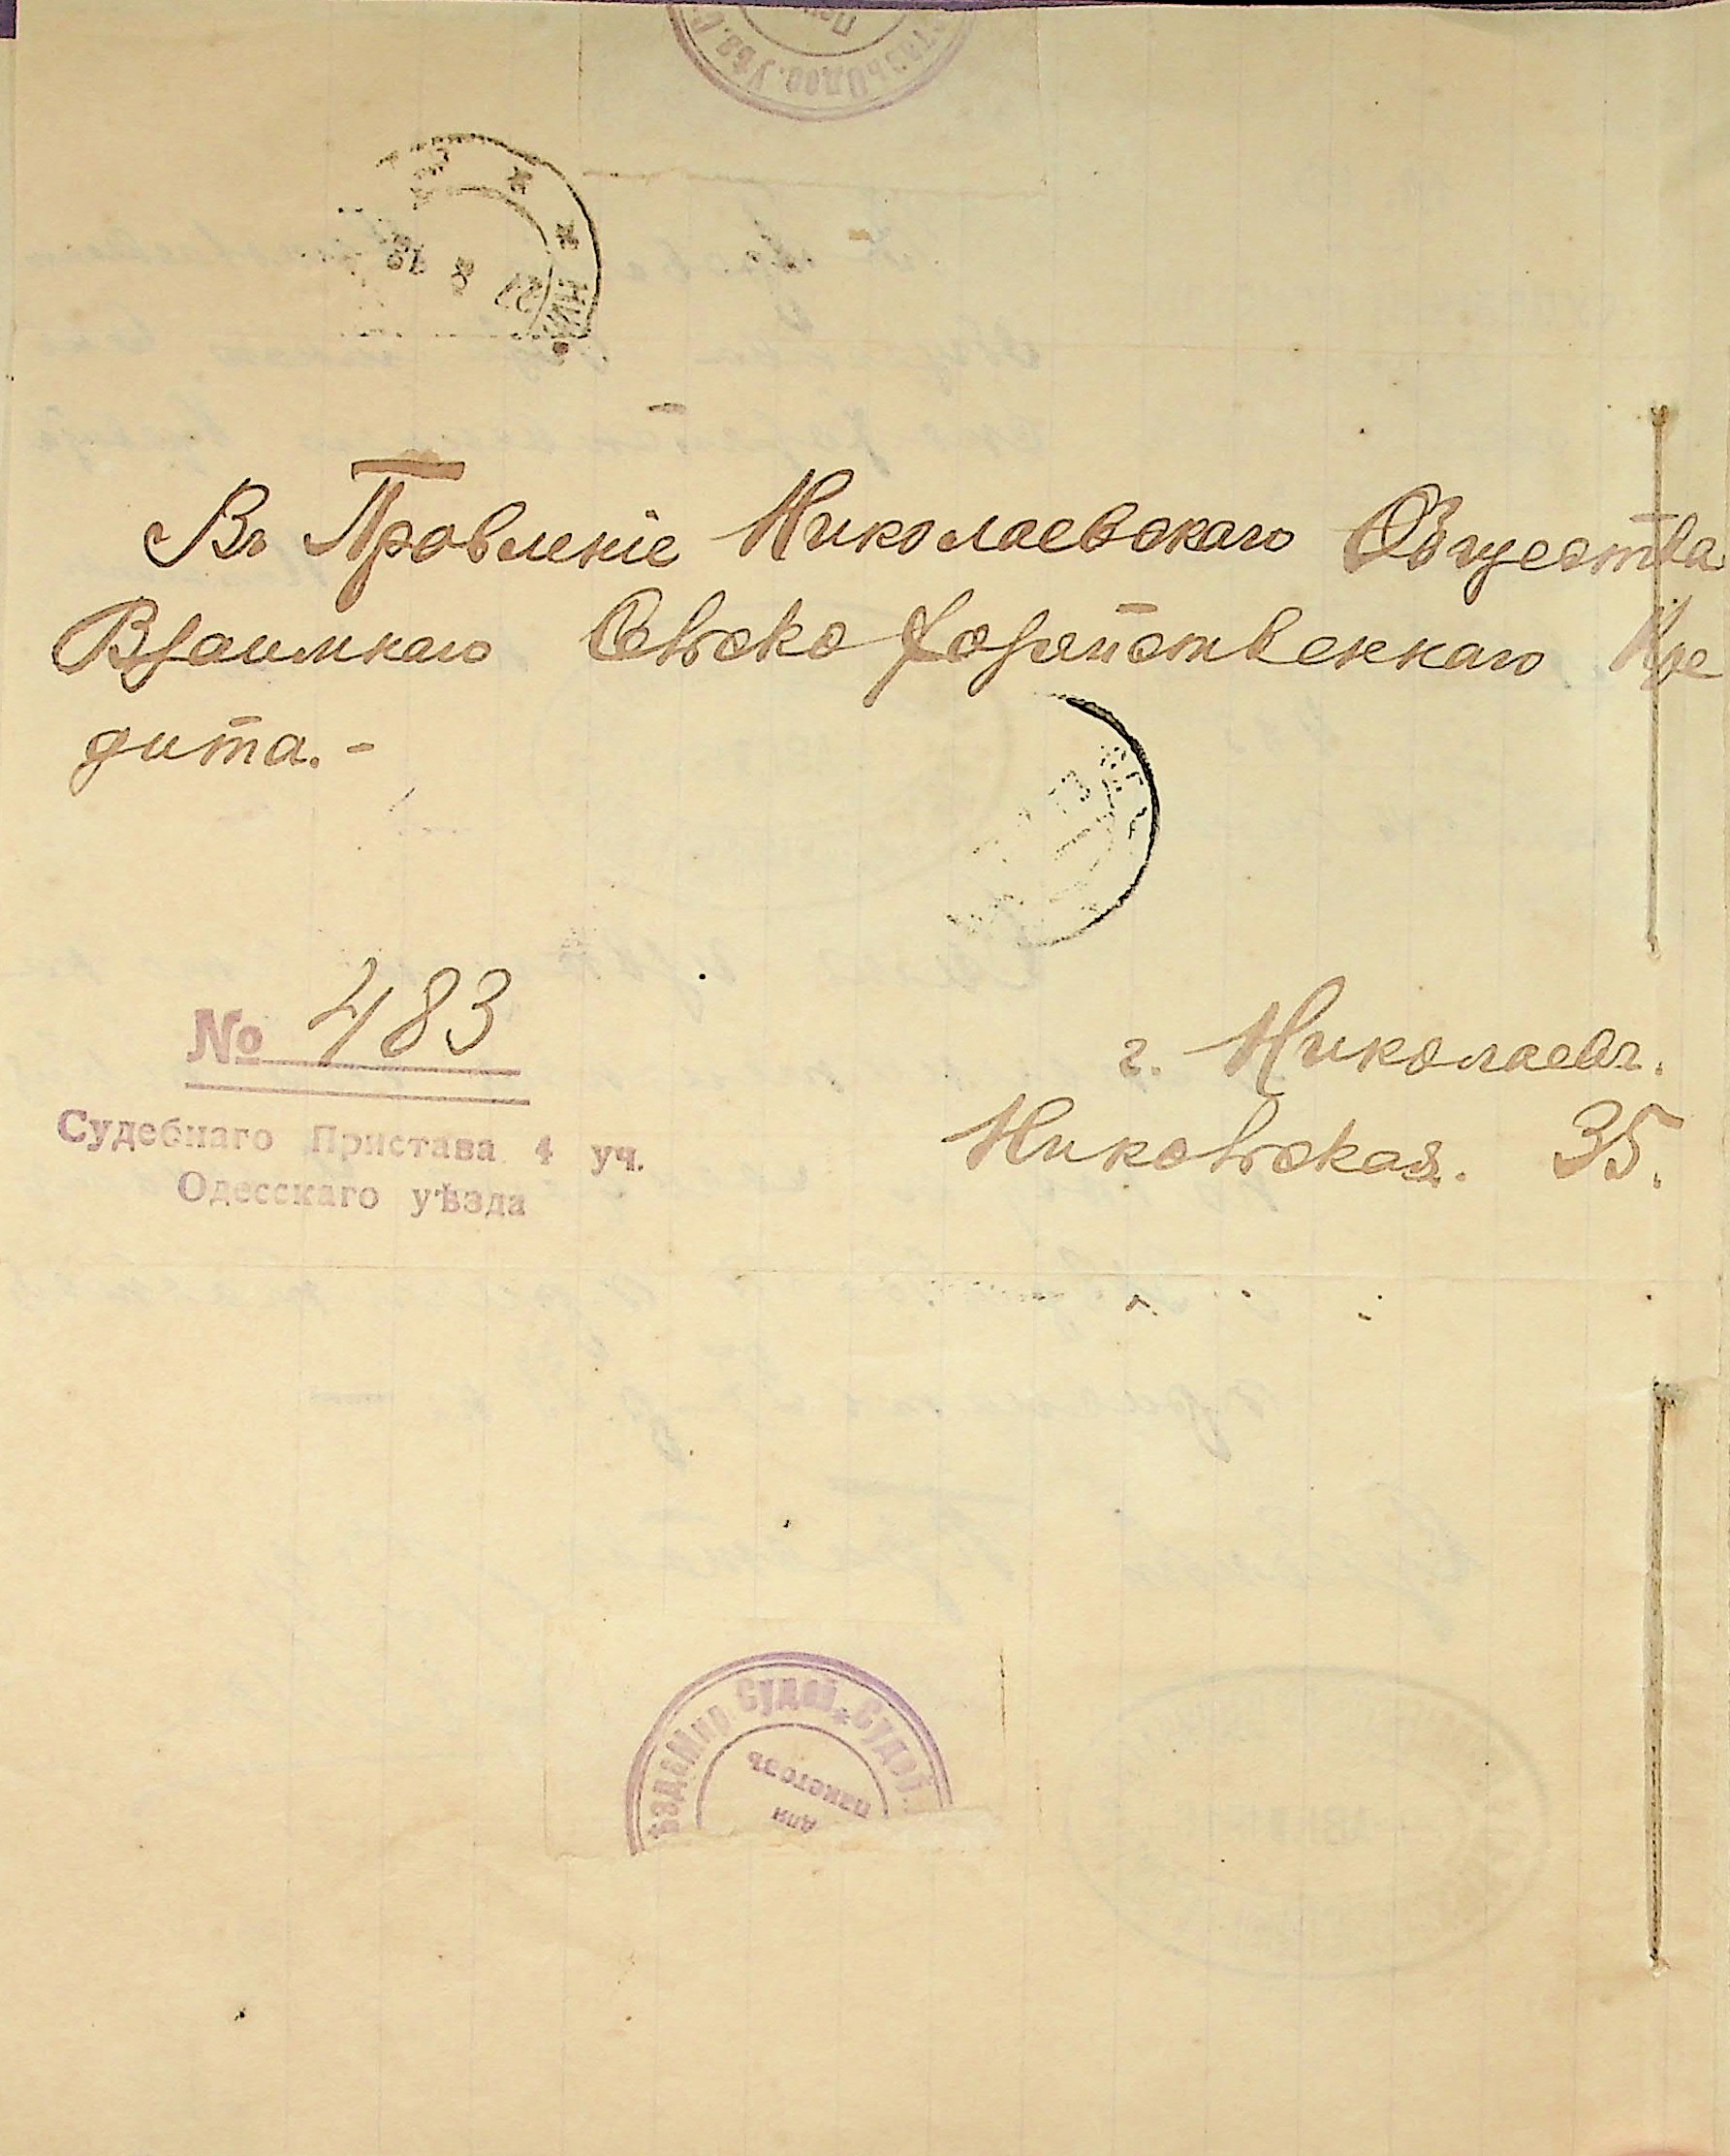 Въ Правленіе Николаевскаго Общества
Взаимнаго Сельско Хозяйственнаго Кре
дита.-
№ 483
Судебнаго Пристава 4 уч.
Одесскаго уѣзда
г. Николаевъ.
Никольская. 35.
Мир. Судей * Судеб.
для
пакетовъ